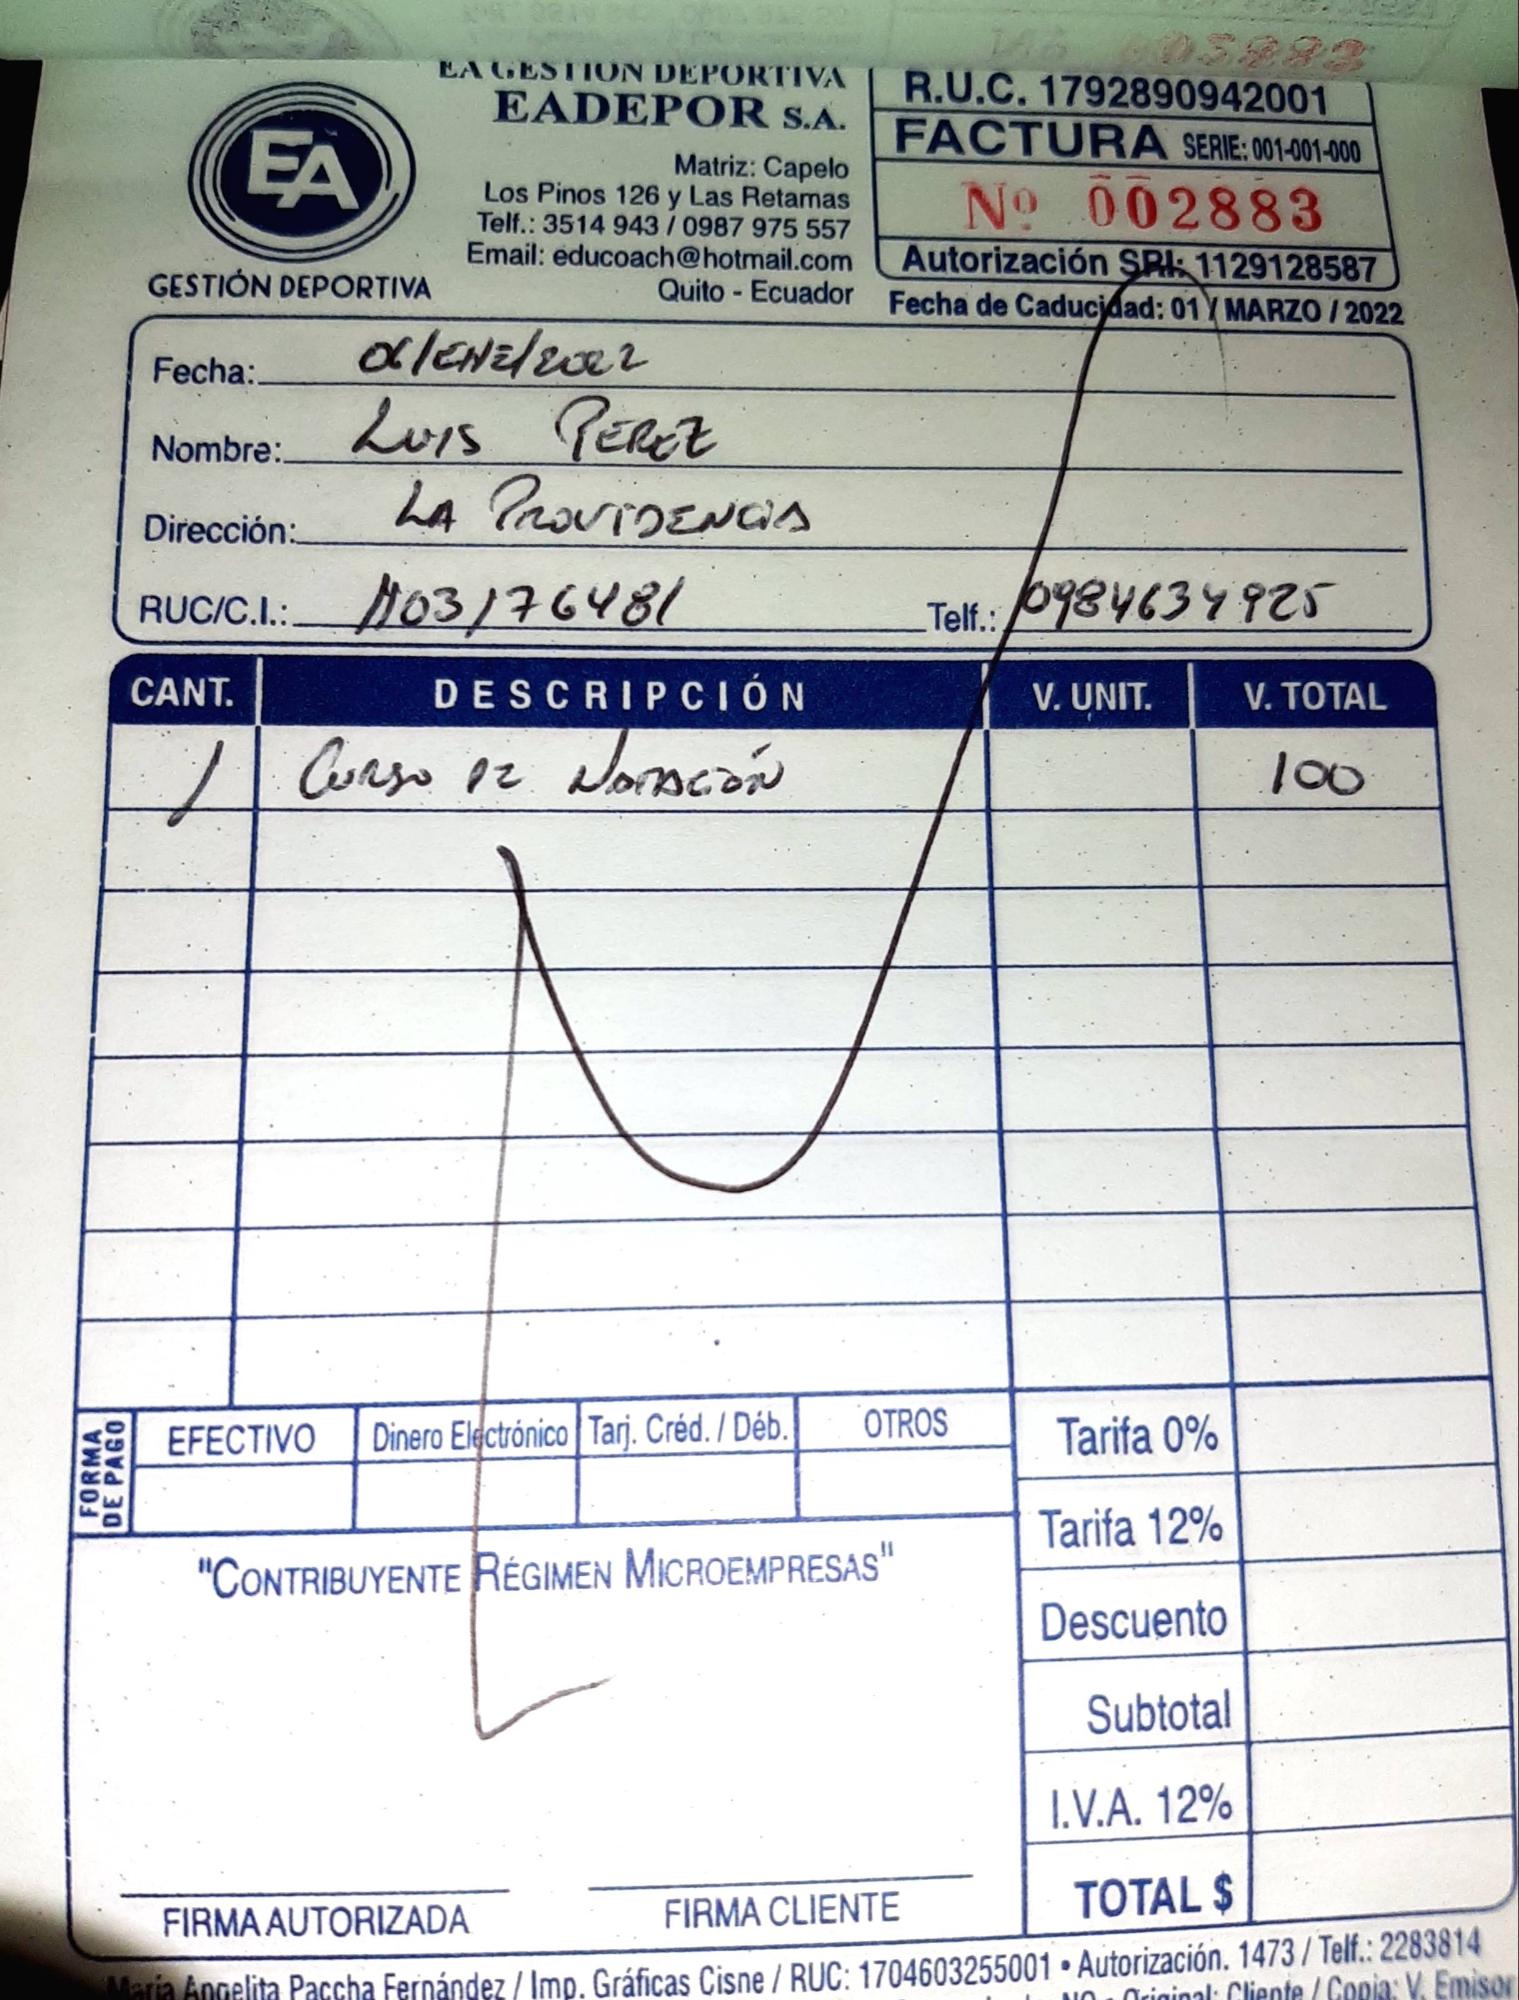 EA GESTION DEPORTIVA
EADEPOR S.A.
Matriz: Capelo
Los Pinos 126 y Las Retamas
Telf.: 3514 943 / 0987 975 557
Email: educoach@hotmail.com
Quito - Ecuador
EA
GESTIÓN DEPORTIVA
R.U.C. 1792890942001
FACTURA SERIE: 001-001-000
Nº 002883
Autorización SRI: 1129128587
Fecha de Caducidad: 01 / MARZO / 2022
Fecha: 06/ENE/2022
Nombre: LUIS PEREZ
Dirección: LA PROVIDENCIA
RUC/C.I.: 1103176481 Telf.: 0984634925
CANT. DESCRIPCIÓN V. UNIT. V. TOTAL
1 CURSO DE NATACIÓN 100
FORMA DE PAGO
EFECTIVO Dinero Electrónico Tarj. Créd. / Déb. OTROS
Tarifa 0%
Tarifa 12%
Descuento
Subtotal
I.V.A. 12%
TOTAL $
"CONTRIBUYENTE RÉGIMEN MICROEMPRESAS"
FIRMA AUTORIZADA FIRMA CLIENTE
María Angelita Paccha Fernández / Imp. Gráficas Cisne / RUC: 1704603255001 • Autorización. 1473 / Telf.: 2283814
Original: Cliente / Copia: V. Emisor